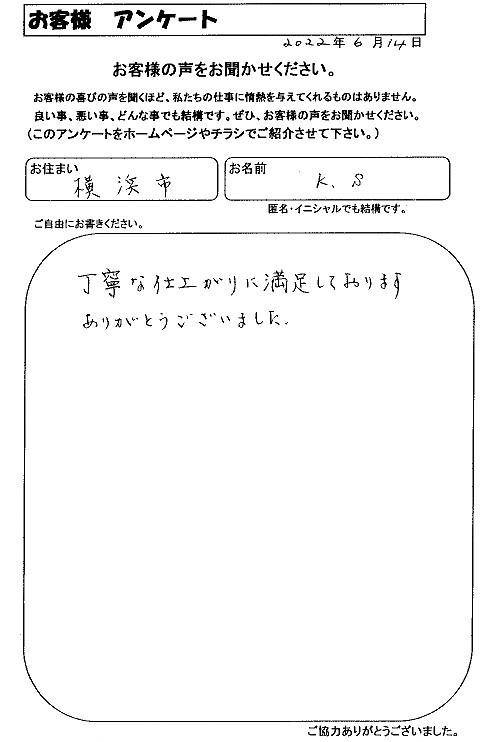 お客様 アンケート
2022年6月14日
お客様の声をお聞かせください。
お客様の喜びの声を聞くほど、私たちの仕事に情熱を与えてくれるものはありません。
良い事、悪い事、どんな事でも結構です。ぜひ、お客様の声をお聞かせください。
(このアンケートをホームページやチラシでご紹介させて下さい。)
お住まい 横浜市
お名前 K.S
匿名・イニシャルでも結構です。
ご自由にお書きください。
丁寧な仕上がりに満足しております
ありがとうございました.
ご協力ありがとうございました。